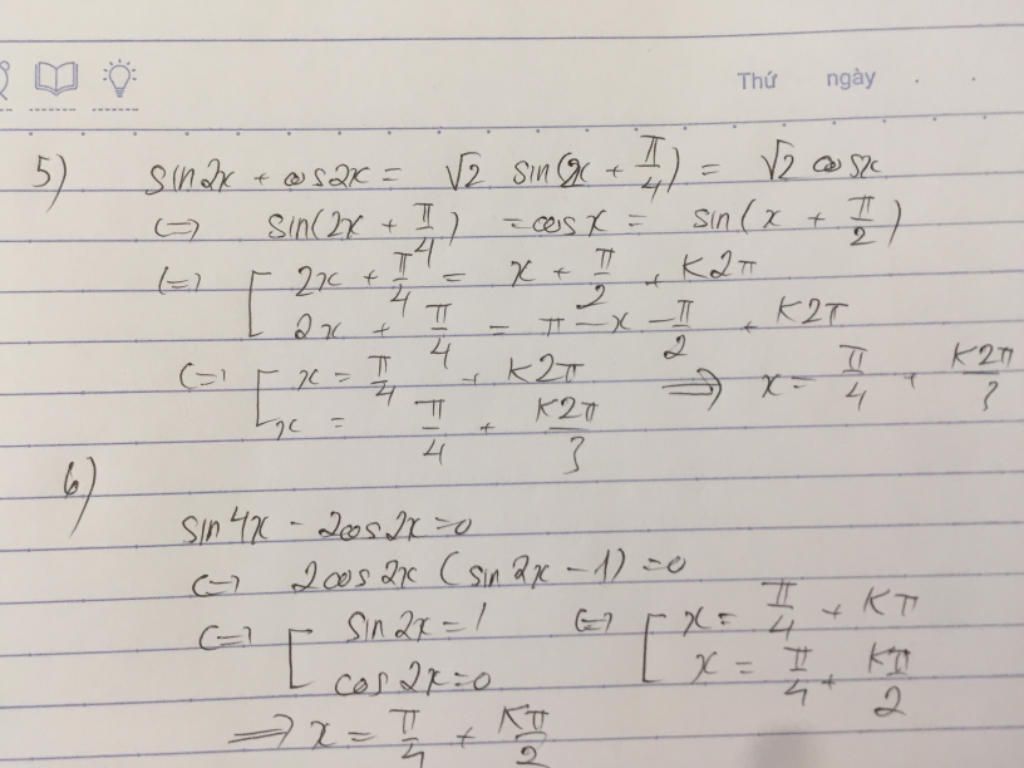 Thứ ngày . .
5) sin2x + cos2x = √2 sin(2x + π/4) = √2 cosx
<=> sin(2x + π/4) = cosx = sin(x + π/2)
<=> [ 2x + π/4 = x + π/2 + K2π
2x + π/4 = π - x - π/2 + K2π
<=> [ x = π/4 + K2π => x = π/4 + K2π/3
x = π/4 + K2π/3
6)
sin4x - 2cos2x = 0
<=> 2cos2x (sin2x - 1) = 0
<=> [ sin2x = 1 <=> [ x = π/4 + Kπ
cos2x = 0 x = π/4 + Kπ/2
=> x = π/4 + Kπ/2